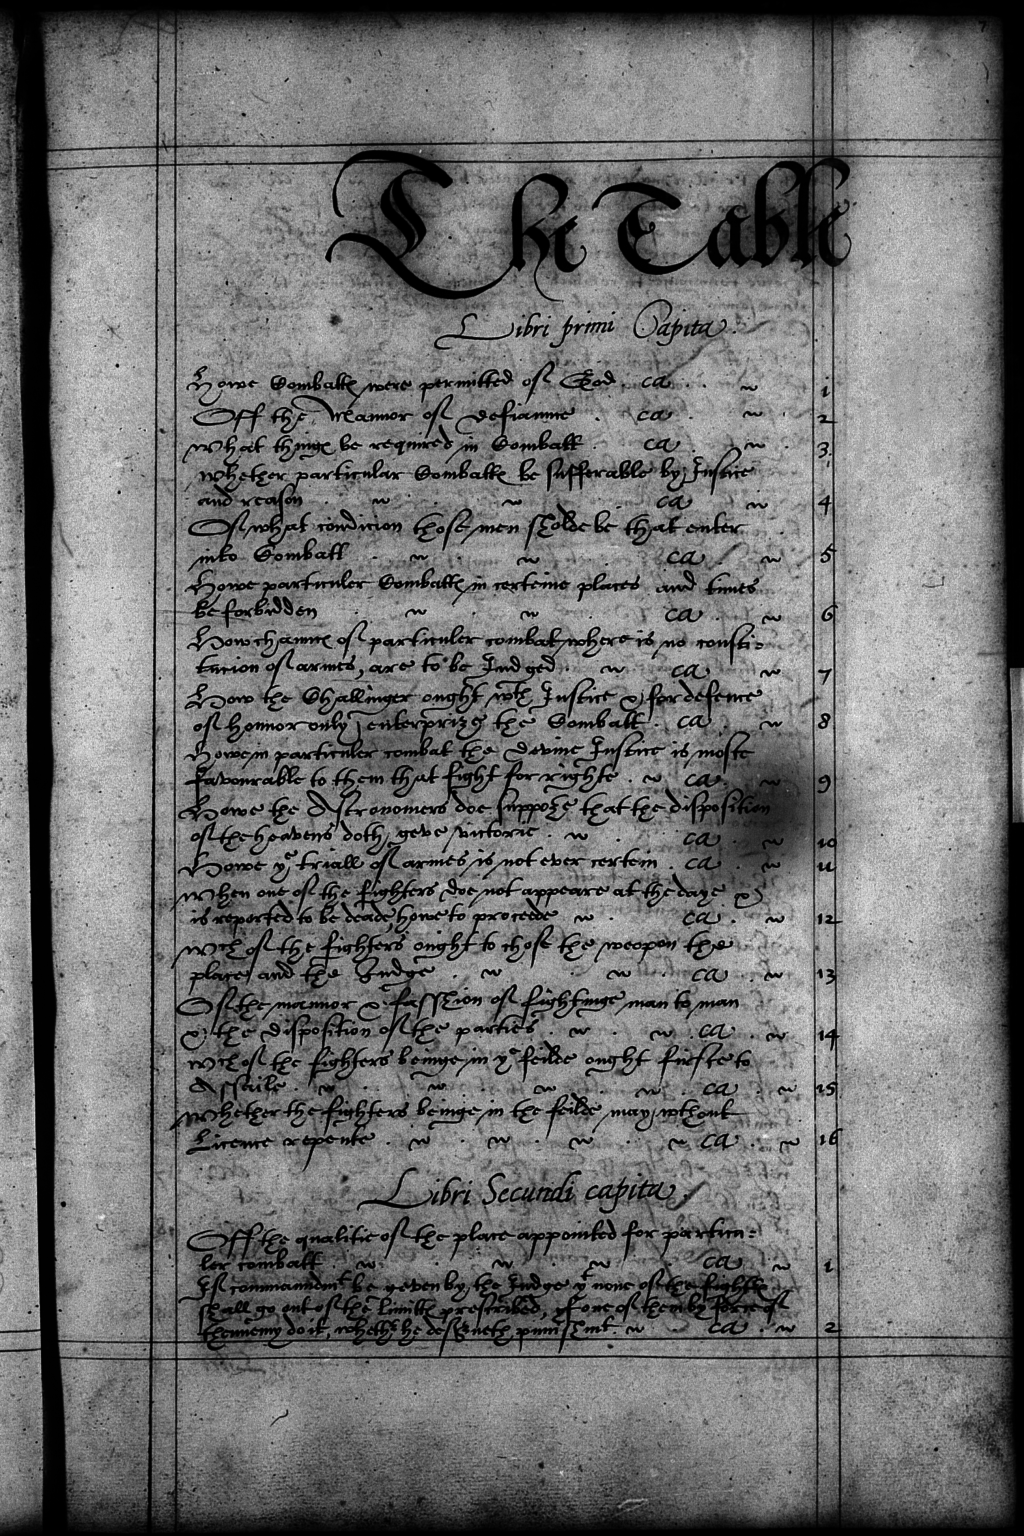 The Table
Libri primi Capita
Howe Combatts were permitted of God . ca . 1
Off the Mannor of defiannce . ca . 2
What things be required in Combatt . ca . 3
Whether particular Combatts be sufferable by Justice
and reason ca 4
Of what condicion those men sholde be that enter
into Combatt ca 5
Howe particuler Combatts in certeine places and times
be forbidden ca 6
How channces of particuler combat where is no consti=
tucion of armes, are to be Judged ca 7
How the Challinger ought wth Justice & for defence
of honnor only enterprize the Combatt . ca 8
Howe in particuler combat the devine Justice is moste
favourable to them that fight for righte . ca 9
Howe the Astronomers doe suppoze that the disposition
of the heavens doth geve victorie . ca 10
Howe ye triall of armes is not ever certein . ca . 11
When one of the fighters doe not appeare at the daye &
is reported to be deade, howe to proceede ca 12
Wch of the fighters ought to chose the weopon the
place and the Judge ca . 13
Of the mannor & fasshion of fightinge man to man
& the disposition of the parties . ca 14
Wch of the fighters beinge in ye feilde ought firste to
Assaile ca . 15
Whether the fighters beinge in the feilde may wthout
Licence repente ca . 16
Libri Secundi capita
Off the qualitie of the place appointed for particu=
ler combatt ca 1
If commanndmt be geven by the Judge yt none of the fighters
shall go out of the limitts prescribed, yf one of them by force of
thennemy do it, whether he deserveth punishmt. ca . 2